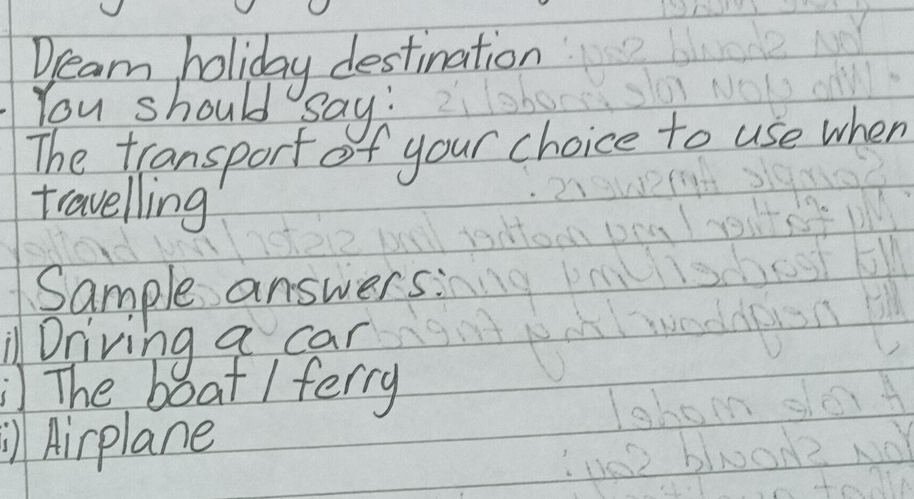 Dream holiday destination
You should say:
The transport of your choice to use when
travelling
Sample answers:
i) Driving a car
i) The boat / ferry
i) Airplane